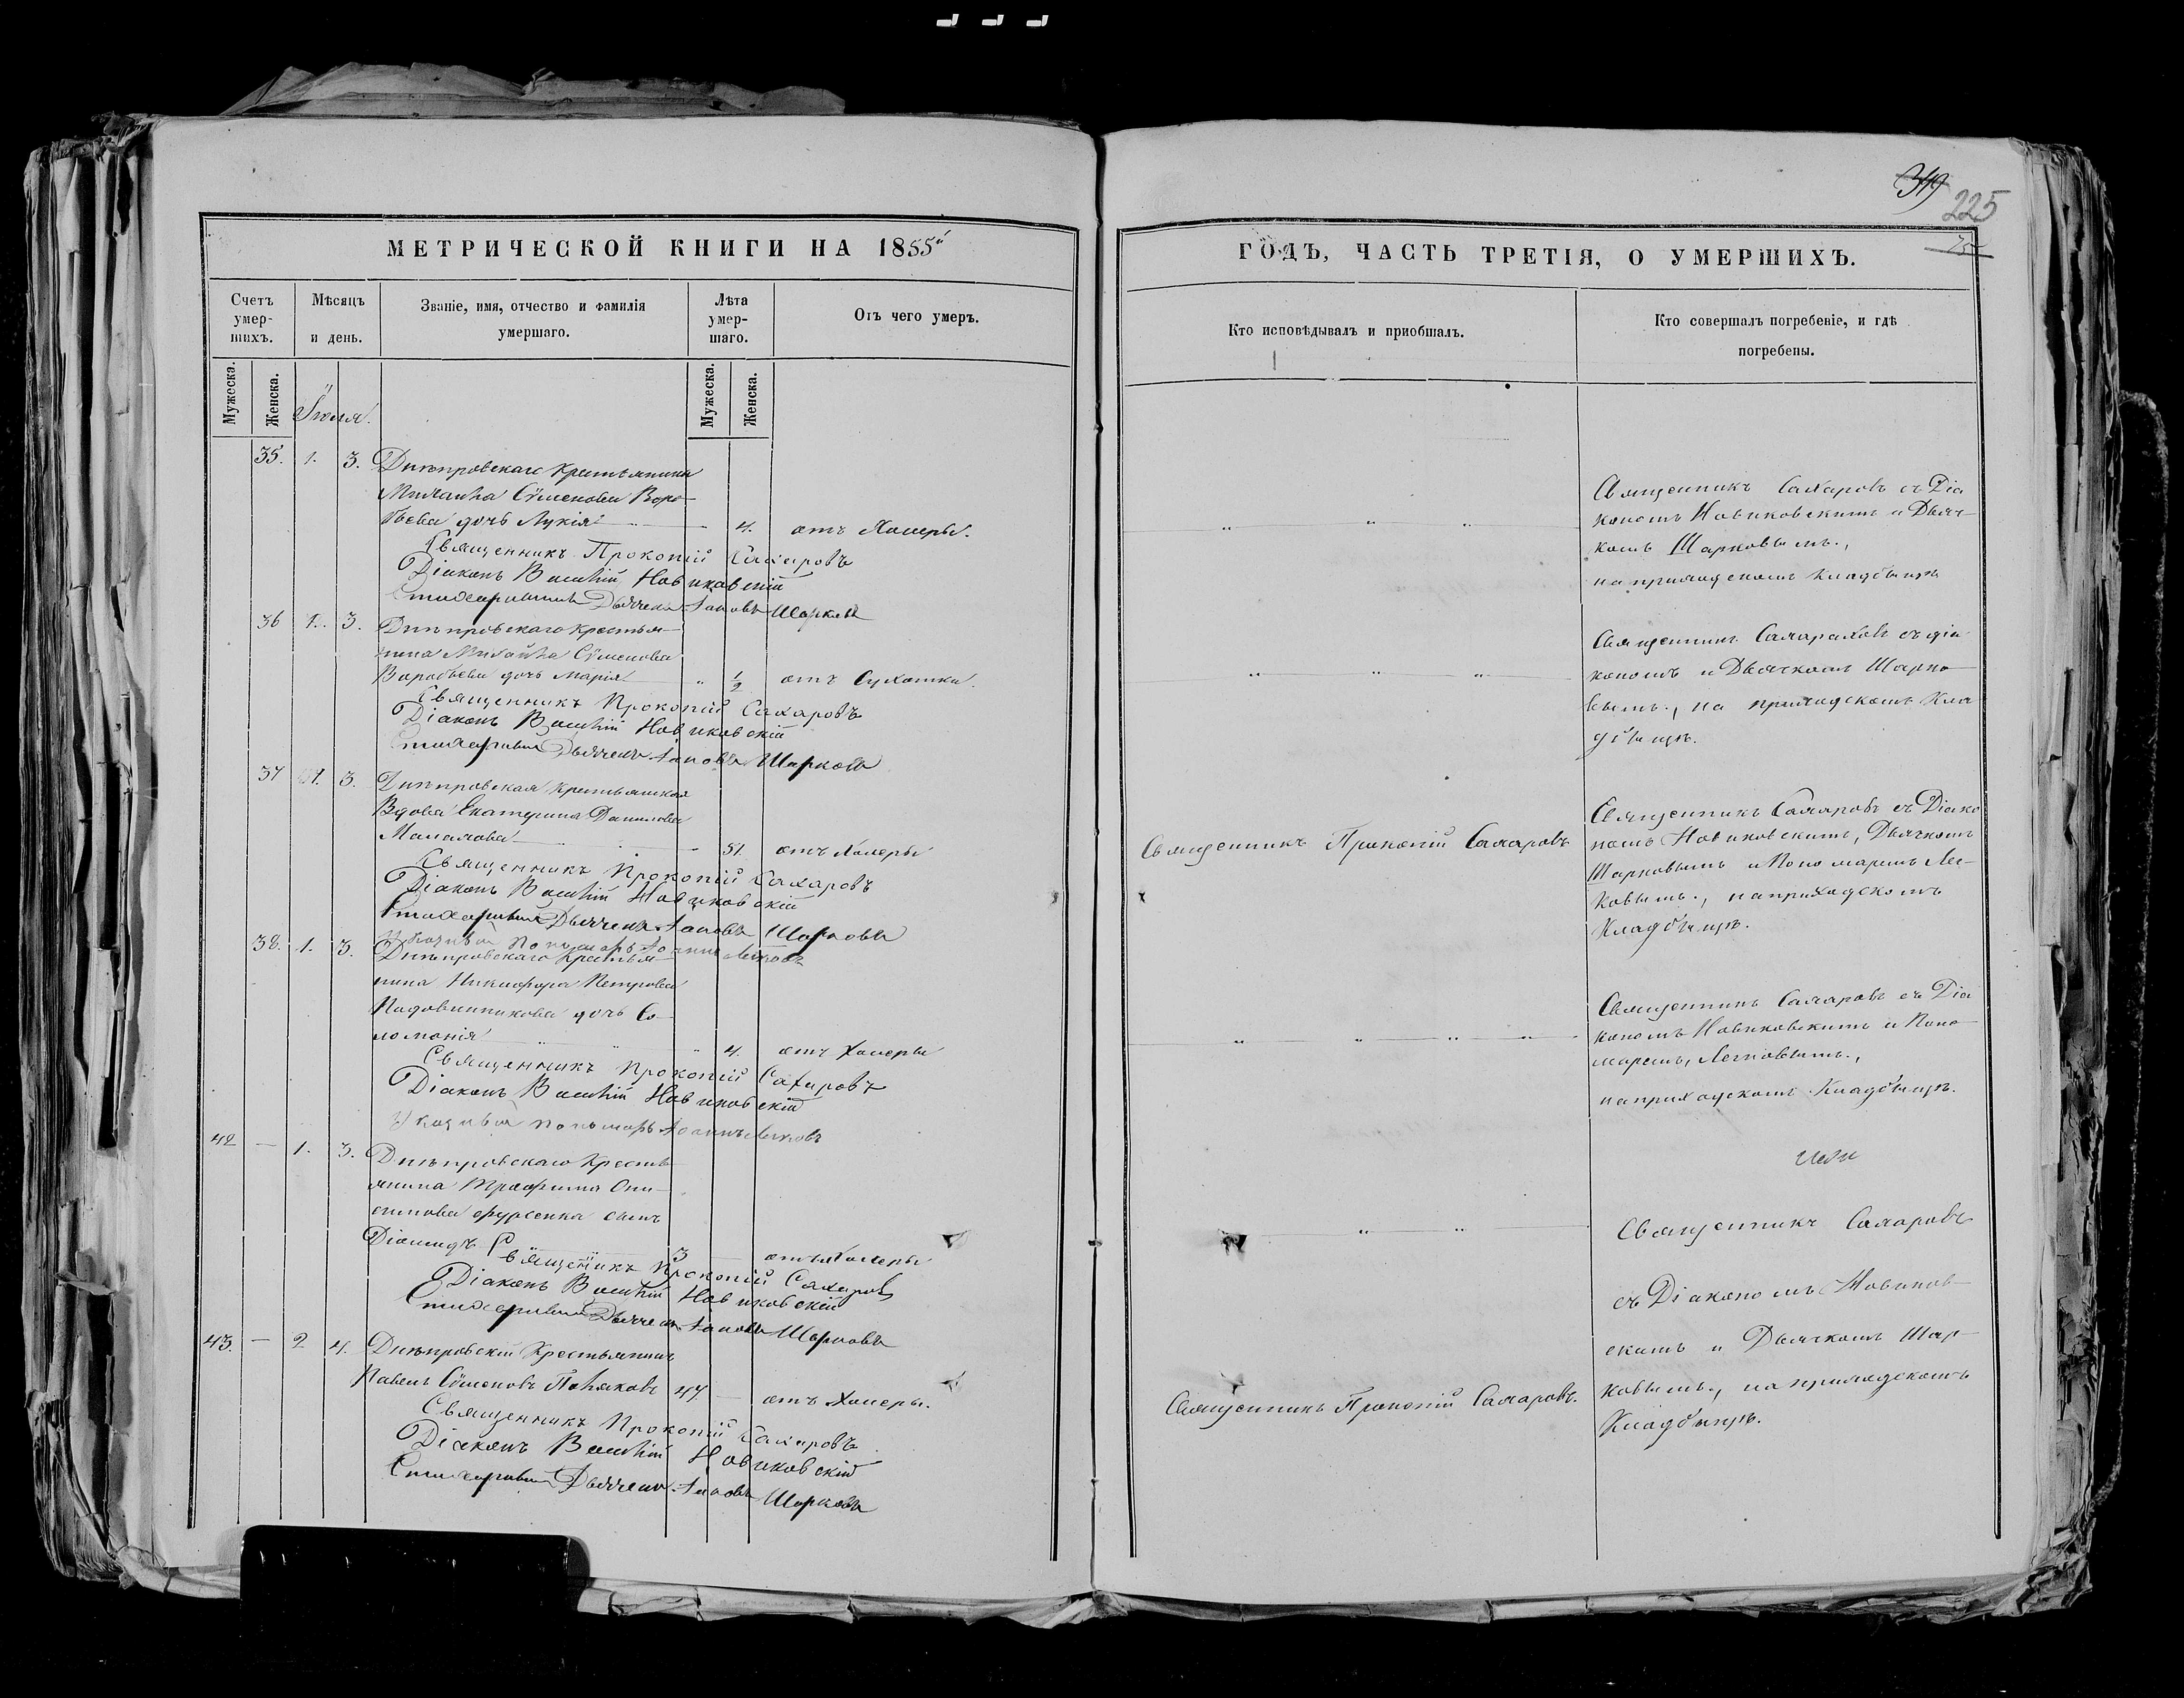 349
225
75
МЕТРИЧЕСКОЙ КНИГИ НА 1855й
ГОДЪ, ЧАСТЬ ТРЕТІЯ, О УМЕРШИХЪ.
Счетъ умер-шихъ.
Мѣсяцъ и день.
Званіе, имя, отчество и фамилія умершаго.
Лѣта умер-шаго.
Отъ чего умеръ.
Кто исповѣдывалъ и пріобщалъ.
Кто совершалъ погребеніе, и гдѣ погребены.
Мужеска.
Женска.
Мужеска.
Женска.
Іюля.
35. 1. 3. Днѣпровскаго Крестьянина
Михаила Сѵмеонова Воро-
бьева дочь Лукія 4. отъ Холеры.
Священникъ Прокопій Сахаровъ
Діаконъ Василій Новиковскій
Стихарный Дьячекъ Іаковъ Шарковъ
Священникъ Сахаровъ съ Діа
кономъ Новиковскимъ и Дьяч-
комъ Шарковымъ.,
на приходскомъ кладбищѣ
36 1. 3. Днѣпровскаго Крестья-
нина Михаила Сѵмеонова
Воробьева дочь Марія 1/2 отъ Сухотки.
Священникъ Прокопій Сахаровъ
Діаконъ Василій Новиковскій
Стихарный Дьячекъ Іаковъ Шарковъ
Священникъ Сахаровъ съ діа
кономъ и Дьячкомъ Шарко-
вымъ., на приходскомъ Кла
дбищѣ.
37 1. 3. Днѣпровская Крестьянская
Вдова Екатерина Данилова
51. отъ Холеры
Священникъ Прокопій Сахаровъ
Діаконъ Василій Новиковскій
Стихарный Дьячекъ Іаковъ Шарковъ
Пономарь Іоаннъ
Священникъ Прокопій Сахаровъ
Священникъ Сахаровъ съ Діако
номъ Новиковскимъ, Дьячкомъ
Шарковымъ и Пономаремъ Лег-
ковымъ., на приходскомъ
Кладбищѣ.
38. 1. 3. Днѣпровскаго Крестья-
нина Никифора Петрова
дочь Со-
ломонія 4. отъ Холеры
Священникъ Прокопій Сахаровъ
Діаконъ Василій Новиковскій
Пономарь Іоаннъ
Священникъ Сахаровъ съ Діа
кономъ Новиковскимъ и Поно-
маремъ, Легковымъ.,
на приходскомъ Кладбищѣ.
42 — 1. 3. Днѣпровскаго Кресть-
янина Трофима Они-
симова Фурсенка сынъ
Діомидъ 3 — отъ Холеры
Священникъ Прокопій Сахаровъ
Діаконъ Василій Новиковскій
Стихарный Дьячекъ Іаковъ Шарковъ
Священникъ Сахаровъ
съ Діакономъ Новиков-
скимъ и Дьячкомъ Шар-
ковымъ., на приходскомъ
Кладбищѣ.
43. — 2 4. Днѣпровскій Крестьянинъ
Павелъ Сѵмеоновъ Поляковъ 47 — отъ Холеры.
Священникъ Прокопій Сахаровъ
Діаконъ Василій Новиковскій
Стихарный Дьячекъ Іаковъ Шарковъ
Священникъ Прокопій Сахаровъ.